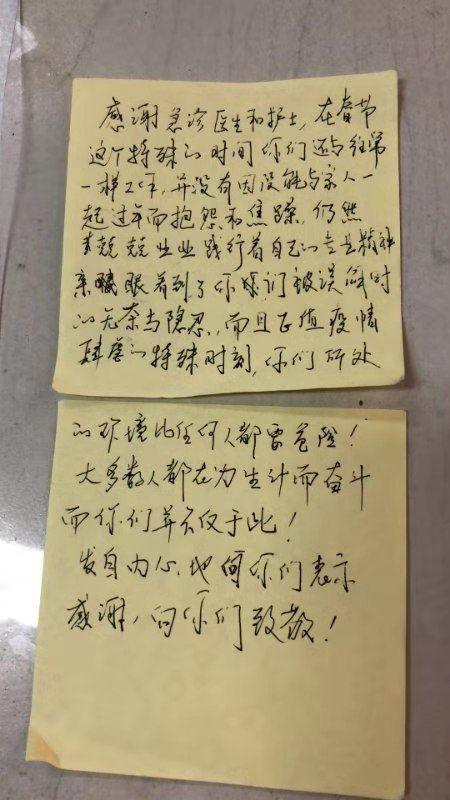 感谢急诊医生和护士，在春节
这个特殊的时间你们还与往常
一样工作，并没有因没能与家人一
起过年而抱怨和焦躁，仍然
兢兢业业践行着自己的专业精神
亲眼看到了你们被误解时
的无奈与隐忍，而且正值疫情
肆虐的特殊时刻，你们所处
的环境比任何人都要危险！
大多数人都在为生计而奋斗
而你们并不仅于此！
发自内心地向你们表示
感谢，向你们致敬！